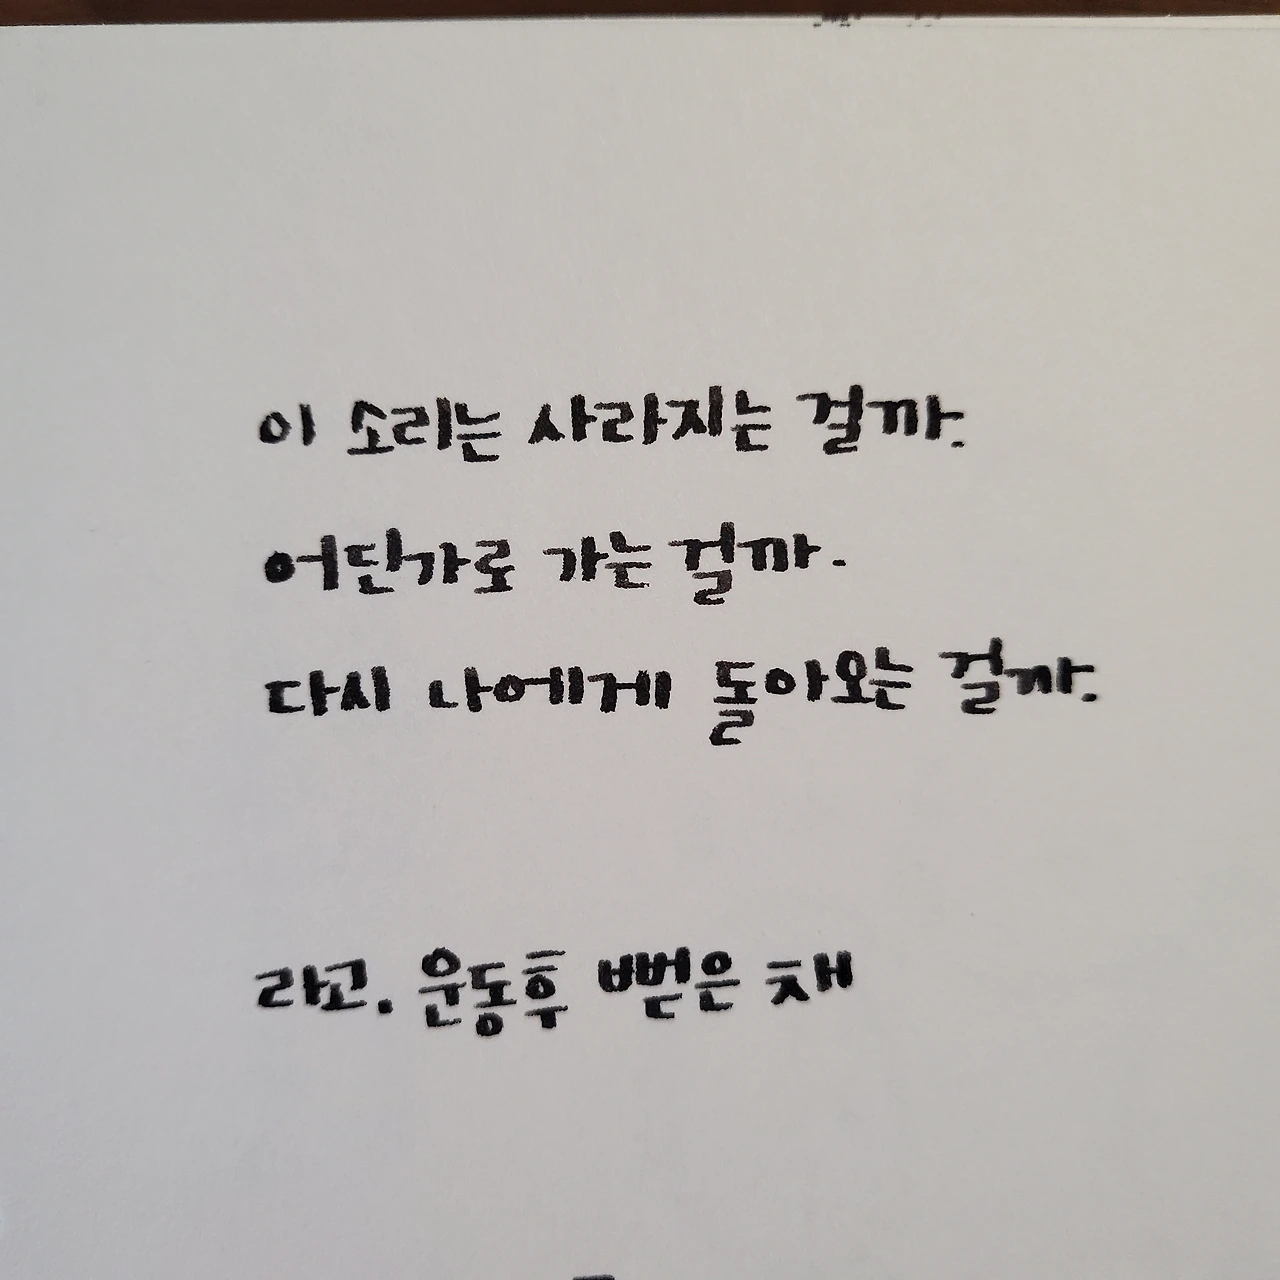 이 소리는 사라지는 걸까.
어딘가로 가는 걸까.
다시 나에게 돌아오는 걸까.
라고. 운동후 뻗은 채